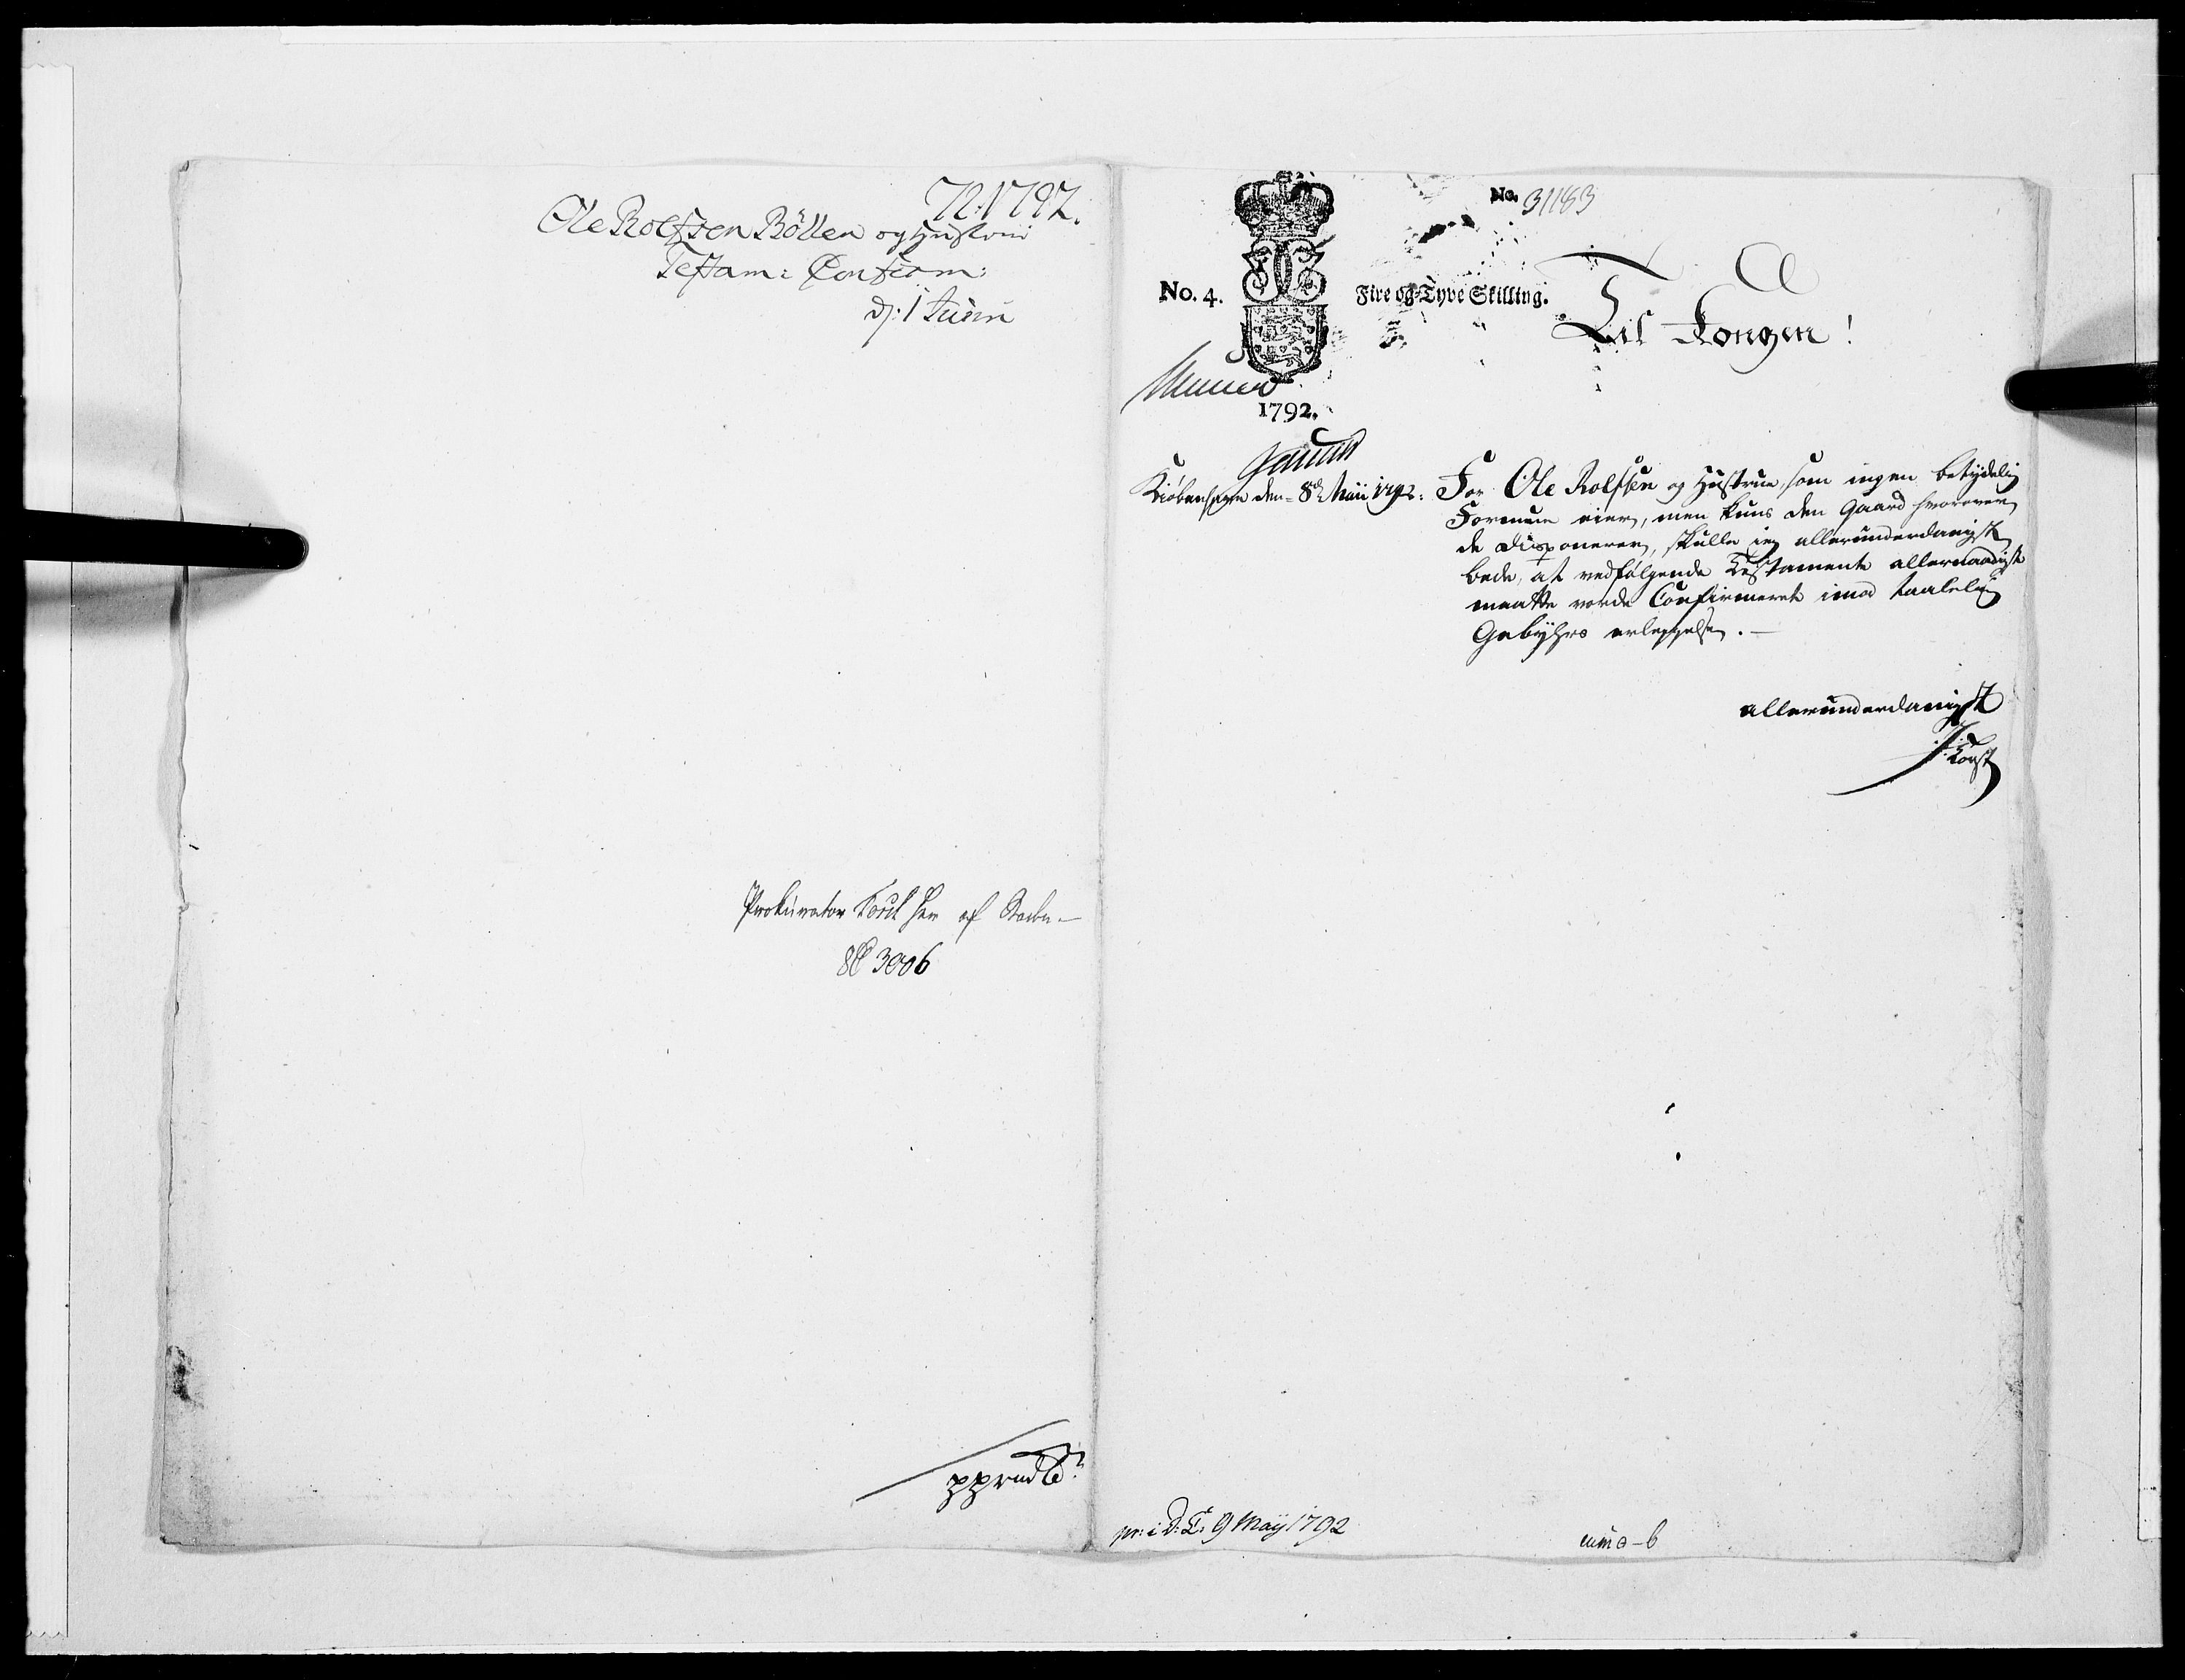 72:1792.
Ole Rolfsen Böllen og Hustrues
Testam: Confirm:
d: 1 Junii
Prokurator Torst her af Staden
No. 31183
No. 4. Fire og Tyve Skilling.
Til Kongen!
1792.
Kiöbenhavn den 8de Maii 1792:
For Ole Rolfsen og Hustrue, som ingen betydelig
Formue eier, men kuns den Gaard hvorover
de disponerer, skulle jeg allerunderdanigst
bede, at vedfølgende Testamente allernaadigst
maatte vorde Confirmeret imod taalelig
Gebyhrs erleggelse.
allerunderdanigst
pr: i D: C: 9 Maÿ 1792
cum a-b